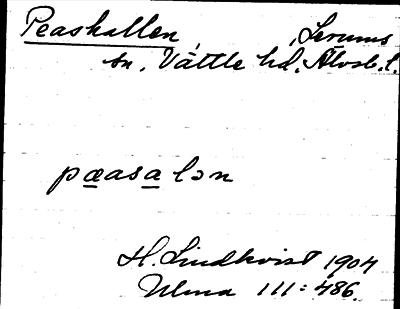 Peashallen, Lerums
sn. Vättle hd. Älvsb. l.
pæasalən
H. Lindkvist 1904
Ulma 111:486.